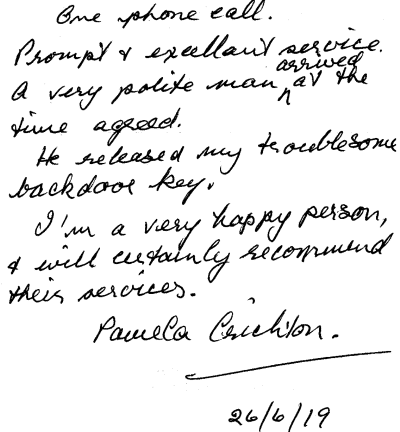 One phone call.
Prompt & excellant service.
A very polite man arrived at the
time agreed.
He released my troublesome
backdoor key.
I'm a very happy person,
& will certainly recommend
their services.
Pamela Crichton.
26/6/19